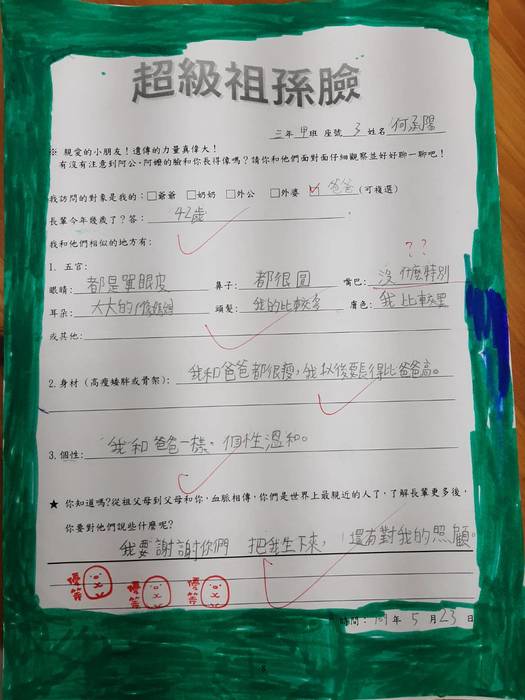 超級祖孫臉
三年甲班 座號 3 姓名 何承陽
※ 親愛的小朋友！遺傳的力量真偉大！
有沒有注意到阿公、阿嬤的臉和你長得像嗎？請你和他們面對面仔細觀察並好好聊一聊吧！
我訪問的對象是我的：□爺爺 □奶奶 □外公 □外婆 ☑爸爸(可複選)
長輩今年幾歲了？答：42歲
我和他們相似的地方有：
? ?
1. 五官：
眼睛：都是單眼皮 鼻子：都很圓 嘴巴：沒什麼特別
耳朵：大大的 頭髮：我的比較多 膚色：我比較黑
或其他：
2. 身材（高瘦矮胖或骨架）：我和爸爸都很瘦，我以後要長得比爸爸高。
3. 個性：我和爸爸一樣。個性溫和。
★ 你知道嗎?從祖父母到父母和你，血脈相傳，你們是世界上最親近的人了，了解長輩更多後，
你要對他們說些什麼呢？
我要謝謝你們 把我生下來， 還有對我的照顧。
優等 優等 優等
時間：109年 5 月 23 日